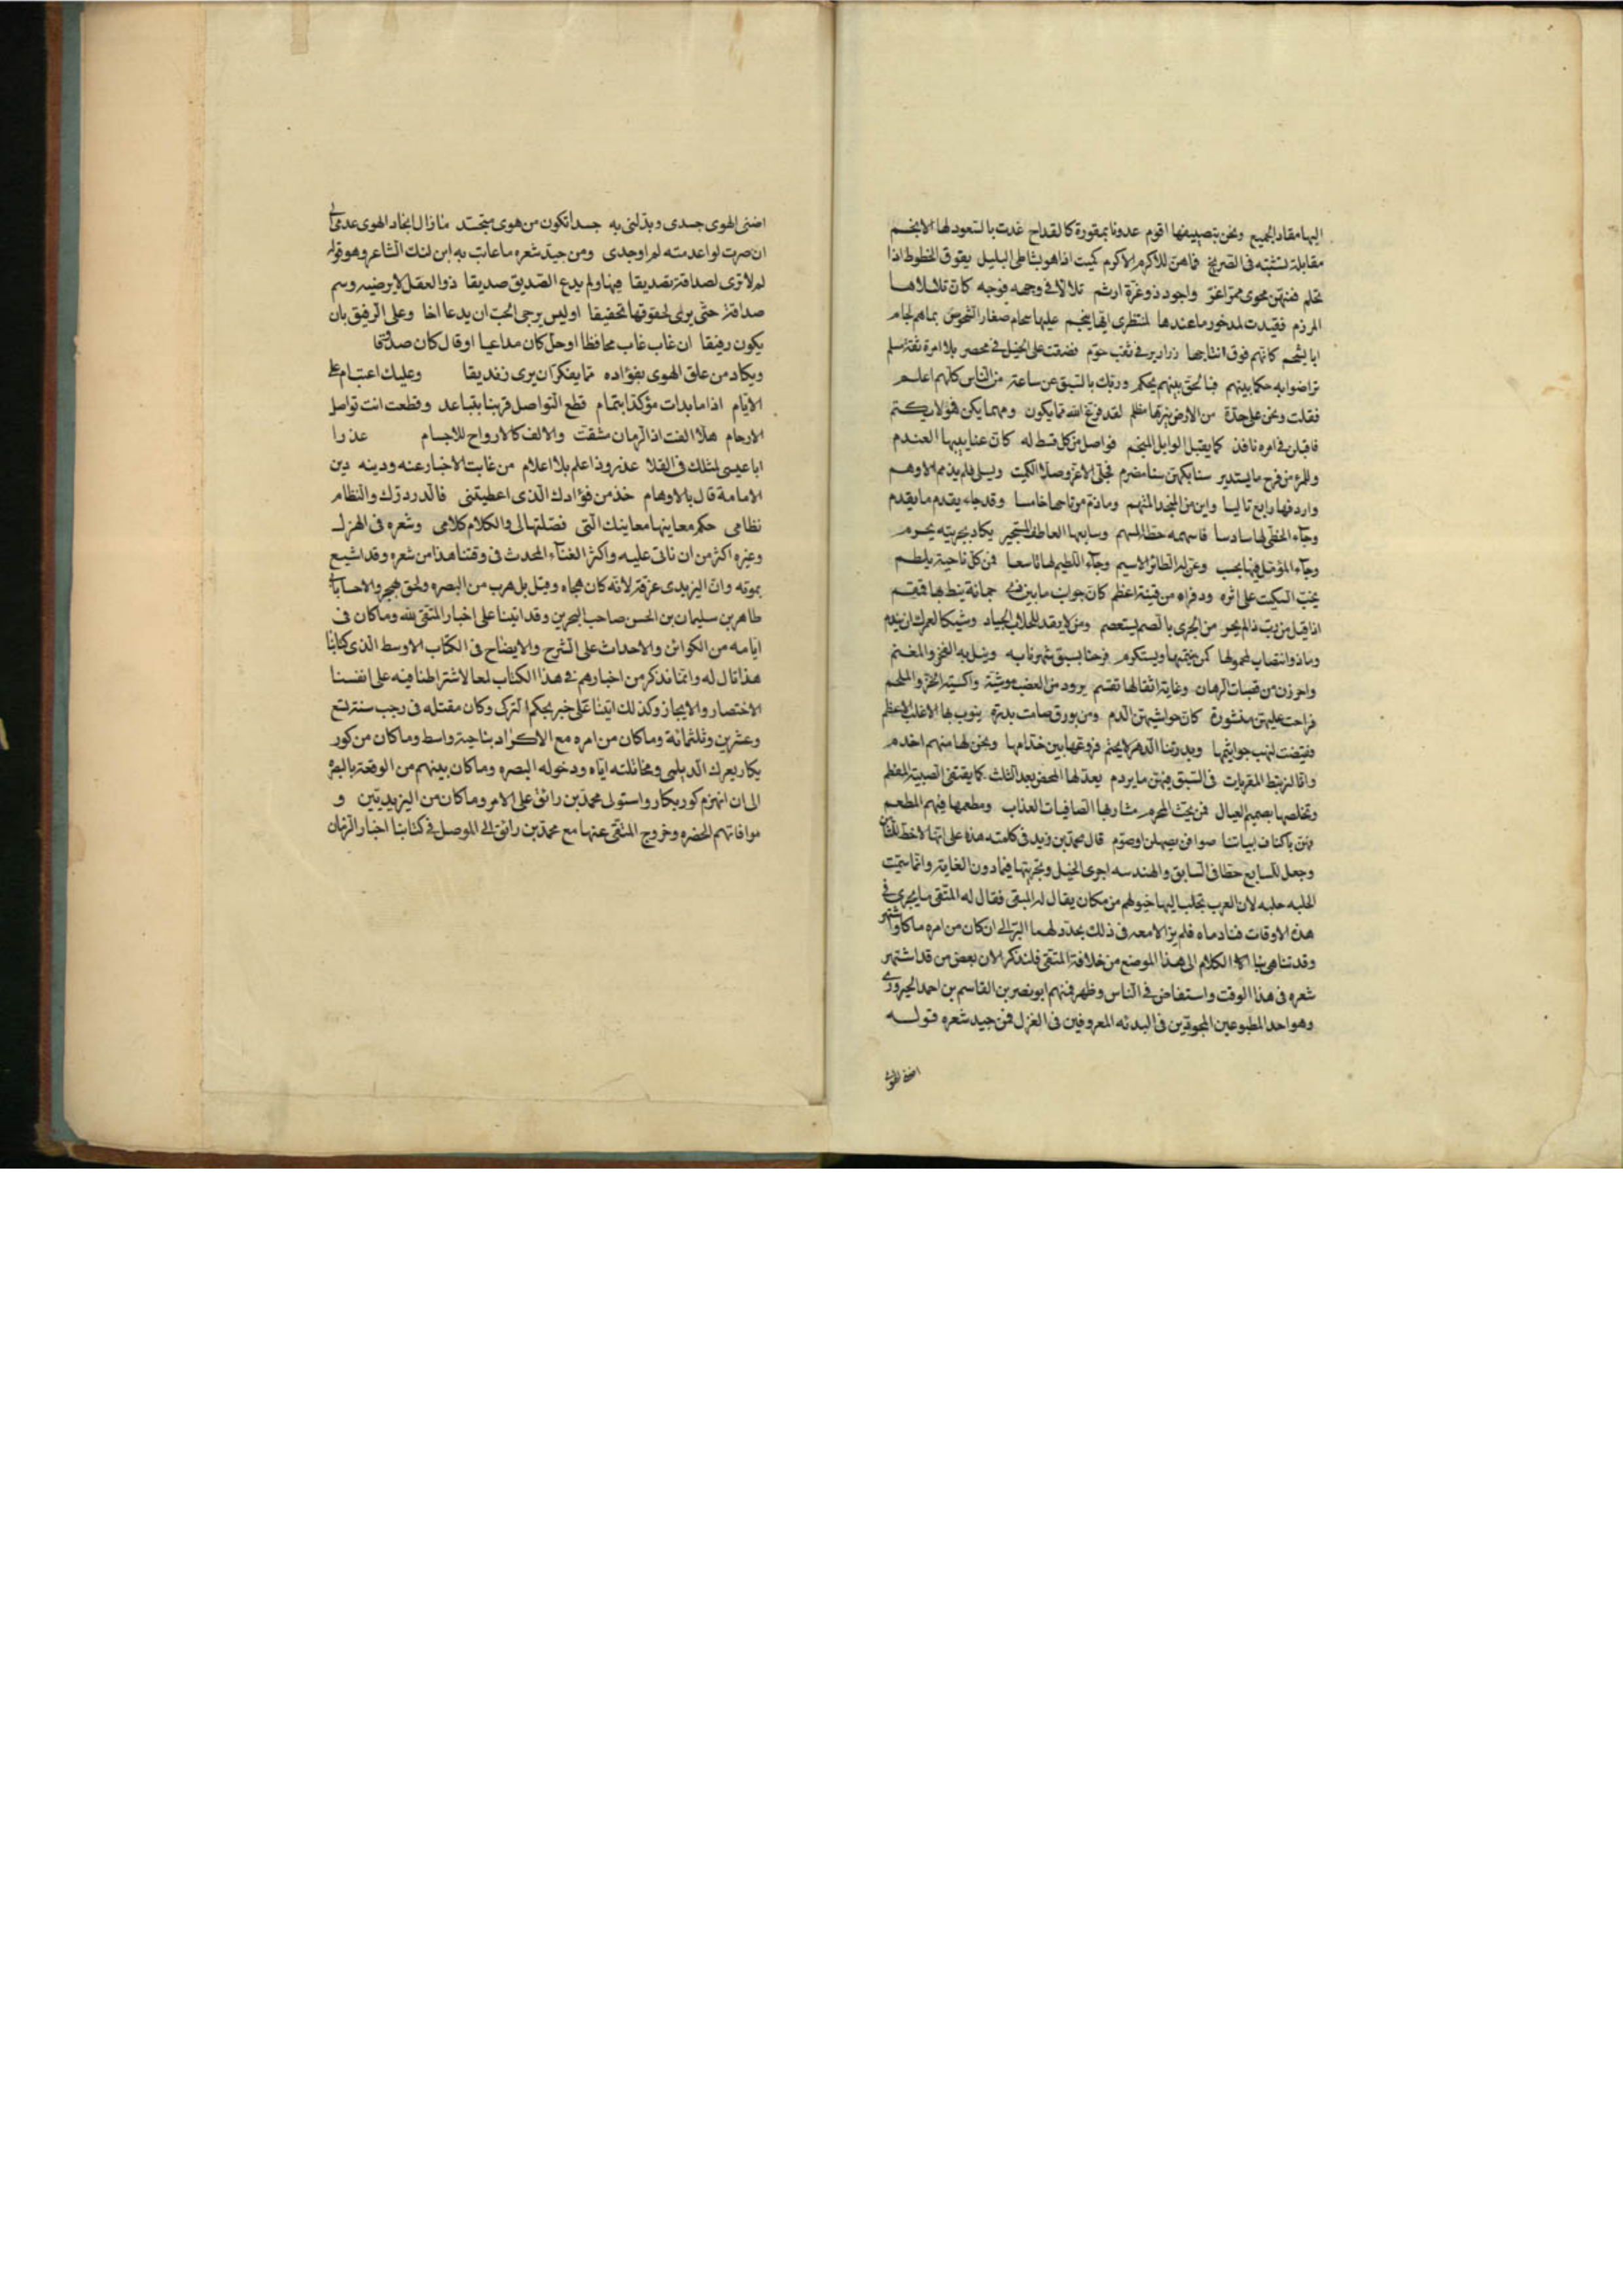 اليها مقاد الجميع ونحن بتصييفها اقوم غدونا بمقورة كالقداح غدت بالسعود لها الانجم
مقابلة لنثبته في الصريح فاهن للاكرم الاكرم كميت اذا هو بشاطى البليل يفوق الخطوط اذا
فمنهن محوى ممر اغر واجود ذو غرة ارثم تلالا فى وجهه فوجه كان تلالاها
المرزم فقيدت لمدخور ما عندها لمنتظرى ايها ينجم عليها سحام صغار الشخوص
كانهم فوق اثباجها زرازير فى نقب حوم فصفت على الحبل فى محضر بلا امره ثقة مسلم
تراضوا به حكما بينهم فبا لحق بينهم يحكم وربك بالسبق عن ساعة من الناس كلهم اعلم
فقلت ونحن على جدة من الارض نيرها مظلم لقد فرغ الله مما يكون ومهما يكن فهو لا يكتم
فاقبلن فى امره نافذ كما يقبل الوابل المثجم فواصل من كل قسط له كان عنابيها العندم
وللمرء من فرح ما يستدير سنابكهن سنا مضرم فجلى الاغر وصلا الكميت ويسلى فلم يذمم الادهم
واردفها رابع تاليا واين من المنجد المتهم وما ذم مرتاحها خامسا وقد جاء يقدم ما يقدم
وجاء الحظى لها سادسا فاسهمه حظا المسهم وسابعها العاطف يكاد بحريته يحرم
وجاء المؤمل فيها يخيب وعن له الطائر الاسيم وجاء اللطيم لها تاسعا فمن كل ناحية يلطم
يخب السكيت على اثره وذفراه من قبة اعظم كان جوانب ما بين جمانة ينط بها
اذا قيل من رب ذا لم يحر من الجرى بالصم يستعصم ومن لا يقد للحلاب الجياد وشيكا لعمرك ان يندم
وماذو اقتضاب لمجهولها كمن ينميها ويستكرم فرحنا بسبق شهرنا به ونيل به الفخر والمغنم
واحرزن من قصبات الرهان وغاية اثقالها تقسم برود من العصب موشية واكسية الخز والملحم
فراحت عليهن منشورة كان حواشيهن الدم ومن ورق صامت بدرة ينوب بها الاغلب الاعظم
ففضت لنهب خواتيمها وبدرتنا الدهر لا يختم فزوعها بين خدامها ونحن لها منهم اخدم
وانا لنرتبط المقربات فى السبق فيهن ما يردم يعد لها المحض بعد الثلث كما يقتفى الصبية المفطم
ونخلصها بصميم العيال فمن تحت المحرم مشاربها الصافيات العذاب ومطعمها فيهم المطعم
فبتن باكناف بيباتنا صوافن يصهلن اوصوم قال محمد بن زيد فى كلمته هذه على انها لاحظ للثامن
وجعل للسابع حظا فى السابق والهندسه اجرى الخيل وتجربتها فيما دون الغاية وانما سميت
الحلبه حلبه لان العرب تحلب اليها خيولهم من مكان يقال له المبقى فقال له المتقى ما يجرى فى
هذه الاوقات فنادماه فلم يزالا معه فى ذلك يجدد لهما البر الى ان كان من امره ما كان واشتهر
وقد تناهى بنا الكلام الى هذا الموضع من خلافة المتقى فلنذكر الان بعض من قد اشتهر
شعره فى هذا الوقت واستفاض فى الناس وظهر فمنهم ابو نصر بن القاسم بن احمد الخبزرزى
وهو احد المطبوعين المجودين فى البدئه المعروفين فى الغزل فمن جيد شعره قولـه
اضنى الهوى
اضنى الهوى جسدى وبدلنى به جسدا تكون من هوى متجسد مازال ايجاد الهوى عدمى الى
ان صرت لو اعدمته لم اوجدى ومن جيد شعره ما عاتب به ابن لنك الشاعر وهو قوله
لم لا ترى لصداقة تصديقا فيها ولم يدع الصديق صديقا ذو العقل لا يرضيه وسم
صداقة حتى يرى لحقوقها تحقيقا اوليس يرجى الحب ان يدعا اخا وعلى الرفيق بان
يكون رفيقا ان غاب غاب محافظا او حل كان مداعيا او قال كان صدقا
ويكاد من علق الهوى بفؤاده مما يفكر ان يرى زنديقا وعليك اعتمام على
الايام اذا ما بدات مؤكدا بتمام قطع التواصل قربنا بتباعد وقطعت انت تواصل
الارحام هلا الفت اذ الزمان مشتت والالف كالارواح للاجسام عذرا
ابا عيسى لمثلك فى القلا عذر وذا علم بلا اعلام من غابت الاخبار عنه ودينه دين
الامامة قال بالاوهام خذ من فؤادك الذى اعطيتنى فالدر درك والنظام
نظامى حكم معاينها معانيك التى فصلتها لى والكلام كلامى وشعره فى الهزل
وغيره اكثر من ان ناتى عليه واكثر الغناء المحدث فى وقتنا هذا من شعره وقد اشيع
بموته وان اليزيدى غرقه لانه كان هجاه وقيل بل هرب من البصره ولحق بهجر والاحسا بابى
طاهر بن سليمان بن الحسن صاحب البحرين وقد اتينا على اخبار المتقى لله وما كان فى
ايامه من الكوائن والاحداث على الشرح والايضاح فى الكتاب الاوسط الذى كتابنا
هذا تال له وانما نذكر من اخبارهم فى هذا الكتاب لمعا لاشتراطنا فيه على انفسنا
الاختصار والايجاز وكذلك اتينا على خبر بجكم التركى وكان مقتله فى رجب سنة تسع
وعشرين وثلثمائة وما كان من امره مع الاكراد بناحية واسط وما كان من كور
بكار بعرك الديلمى ومخاتلته اياه ودخوله البصره وما كان بينهم من الوقعة بالبصرة
الى ان انهزم كور بكار واستولى محمد بن رائق على الامر وما كان من اليزيديين و
موافاتهم الحضره وخروج المتقى عنها مع محمد بن رائق الى الموصل فى كتابنا اخبار الزمان